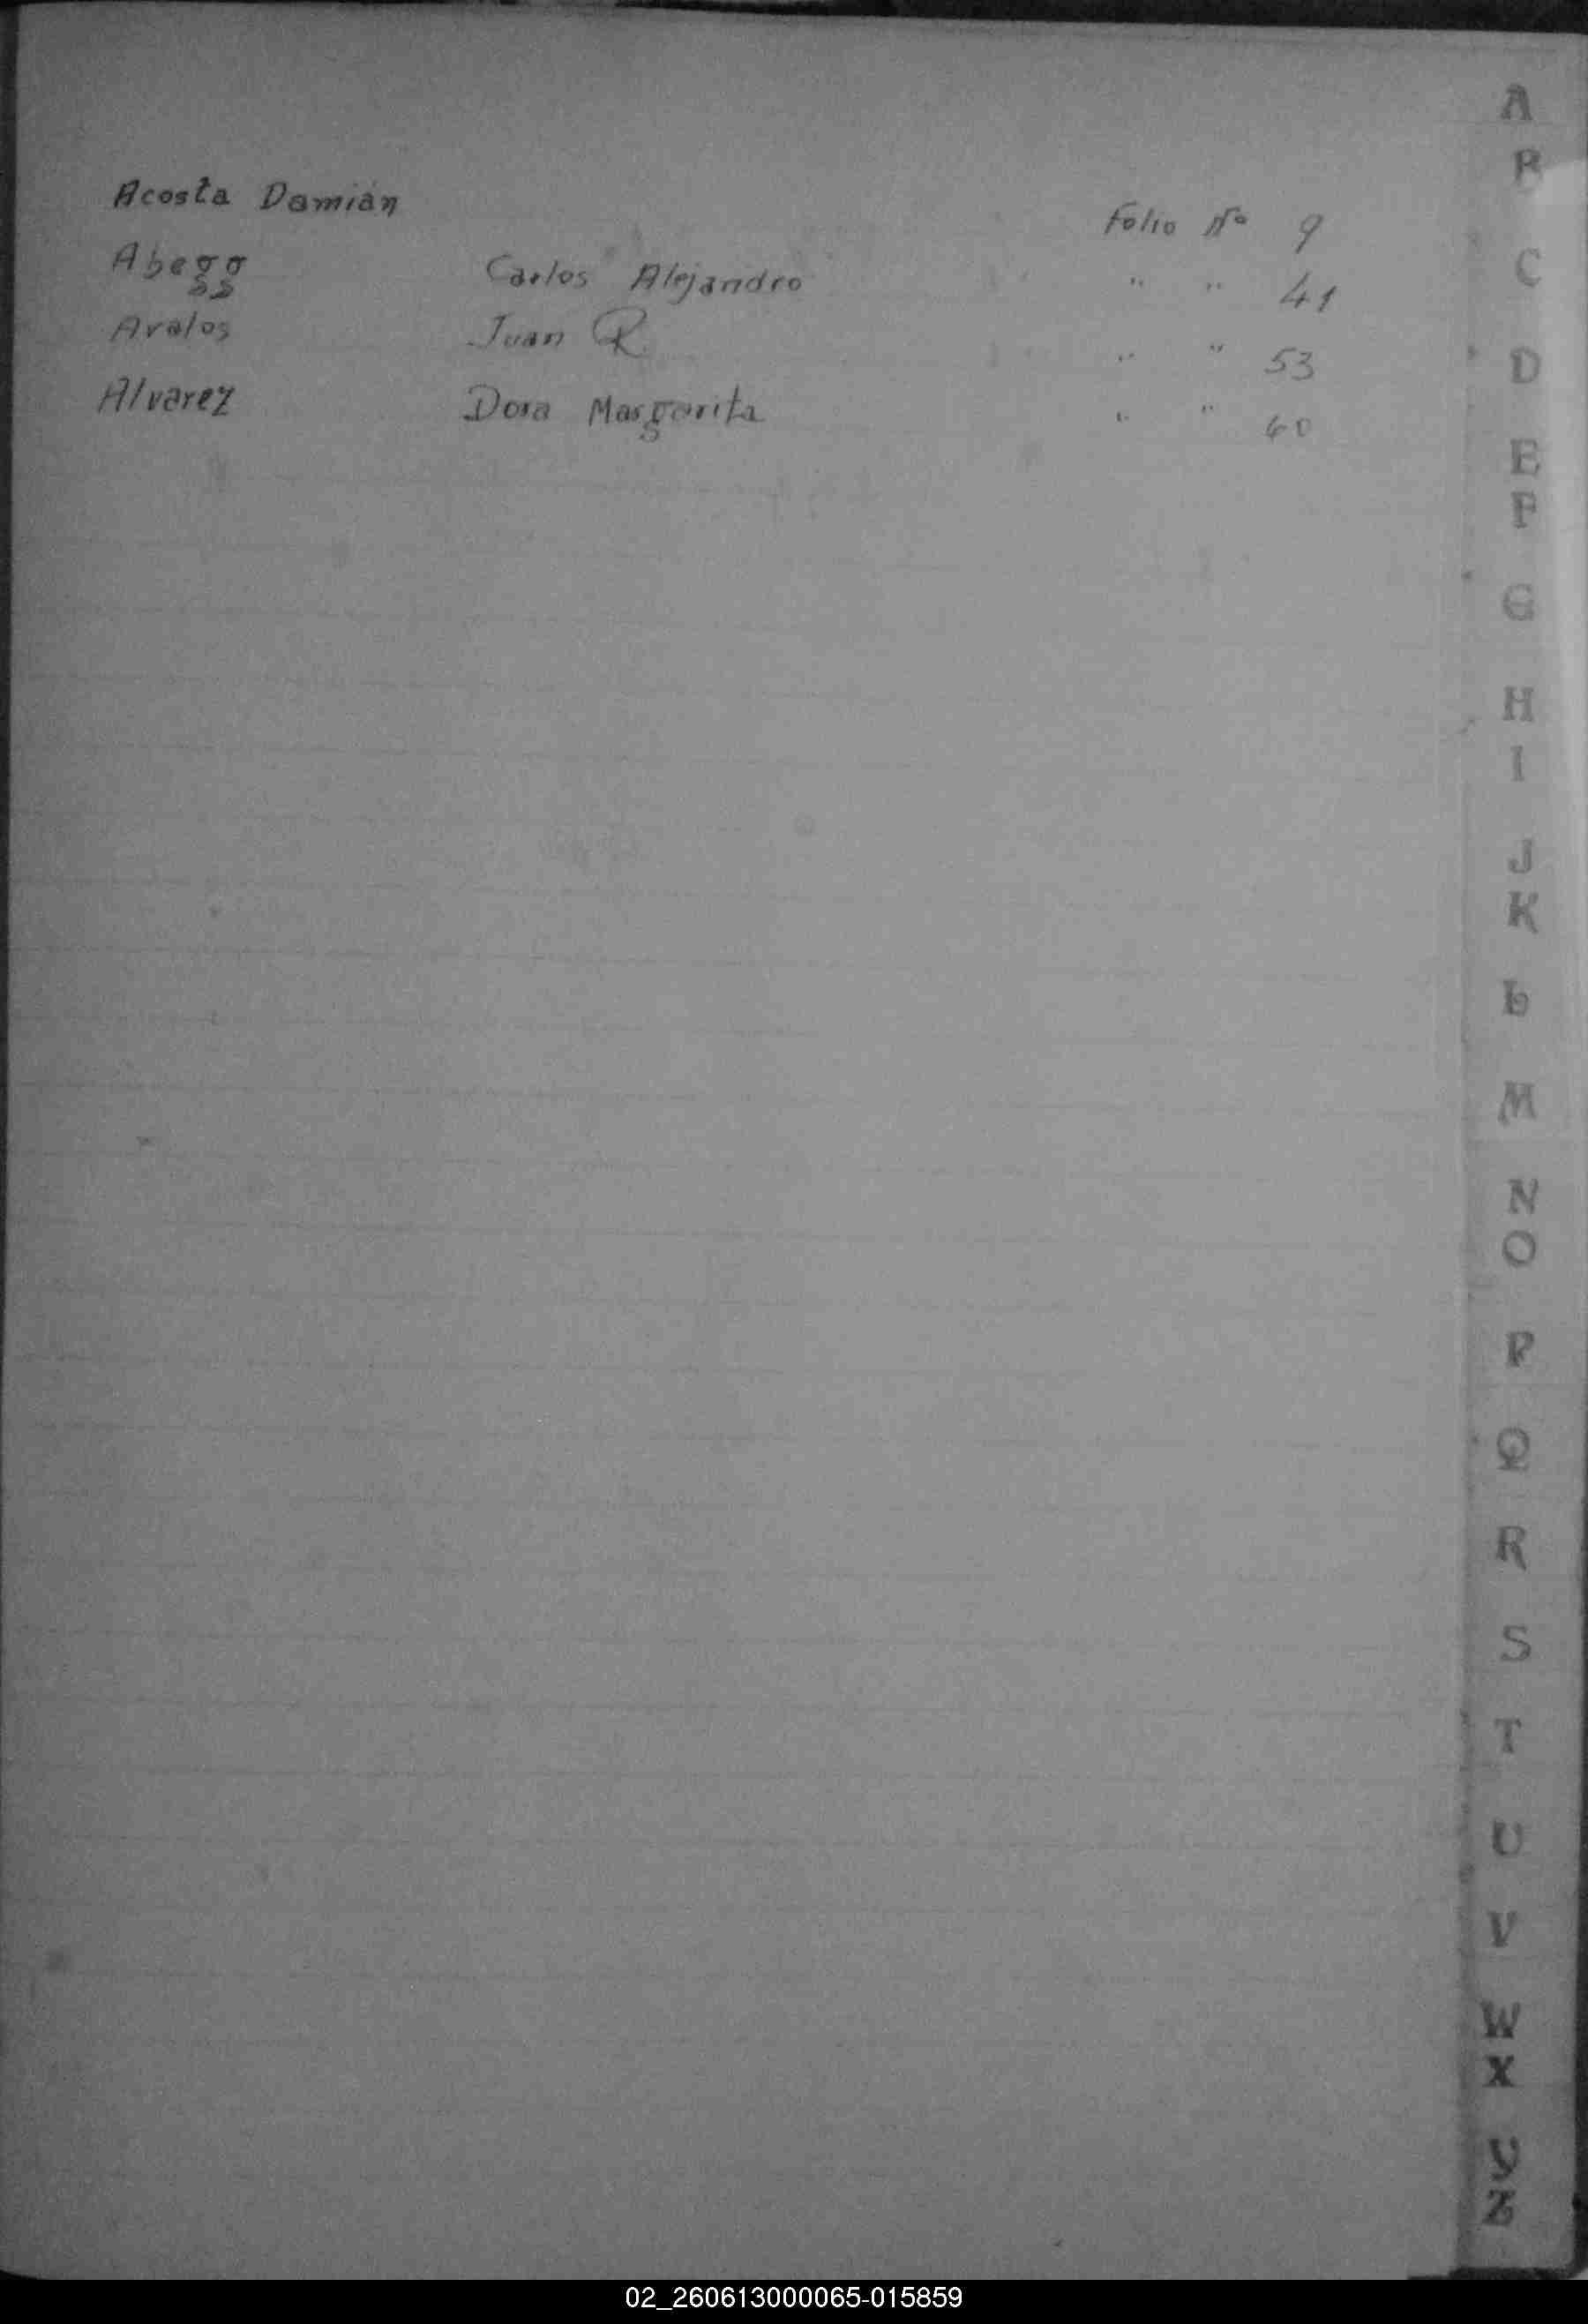 Acosta Damián Folio Nº 9
Abegg Carlos Alejandro " " 41
Avalos Juan R. " " 53
Alvarez Dora Margarita " " 60
A
B
C
D
E
F
G
H
I
J
K
L
M
N
O
P
Q
R
S
T
U
V
W
X
Y
Z
02_260613000065-015859